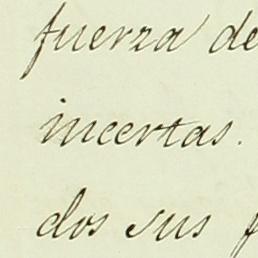 fuerza de
incertas.
dos sus